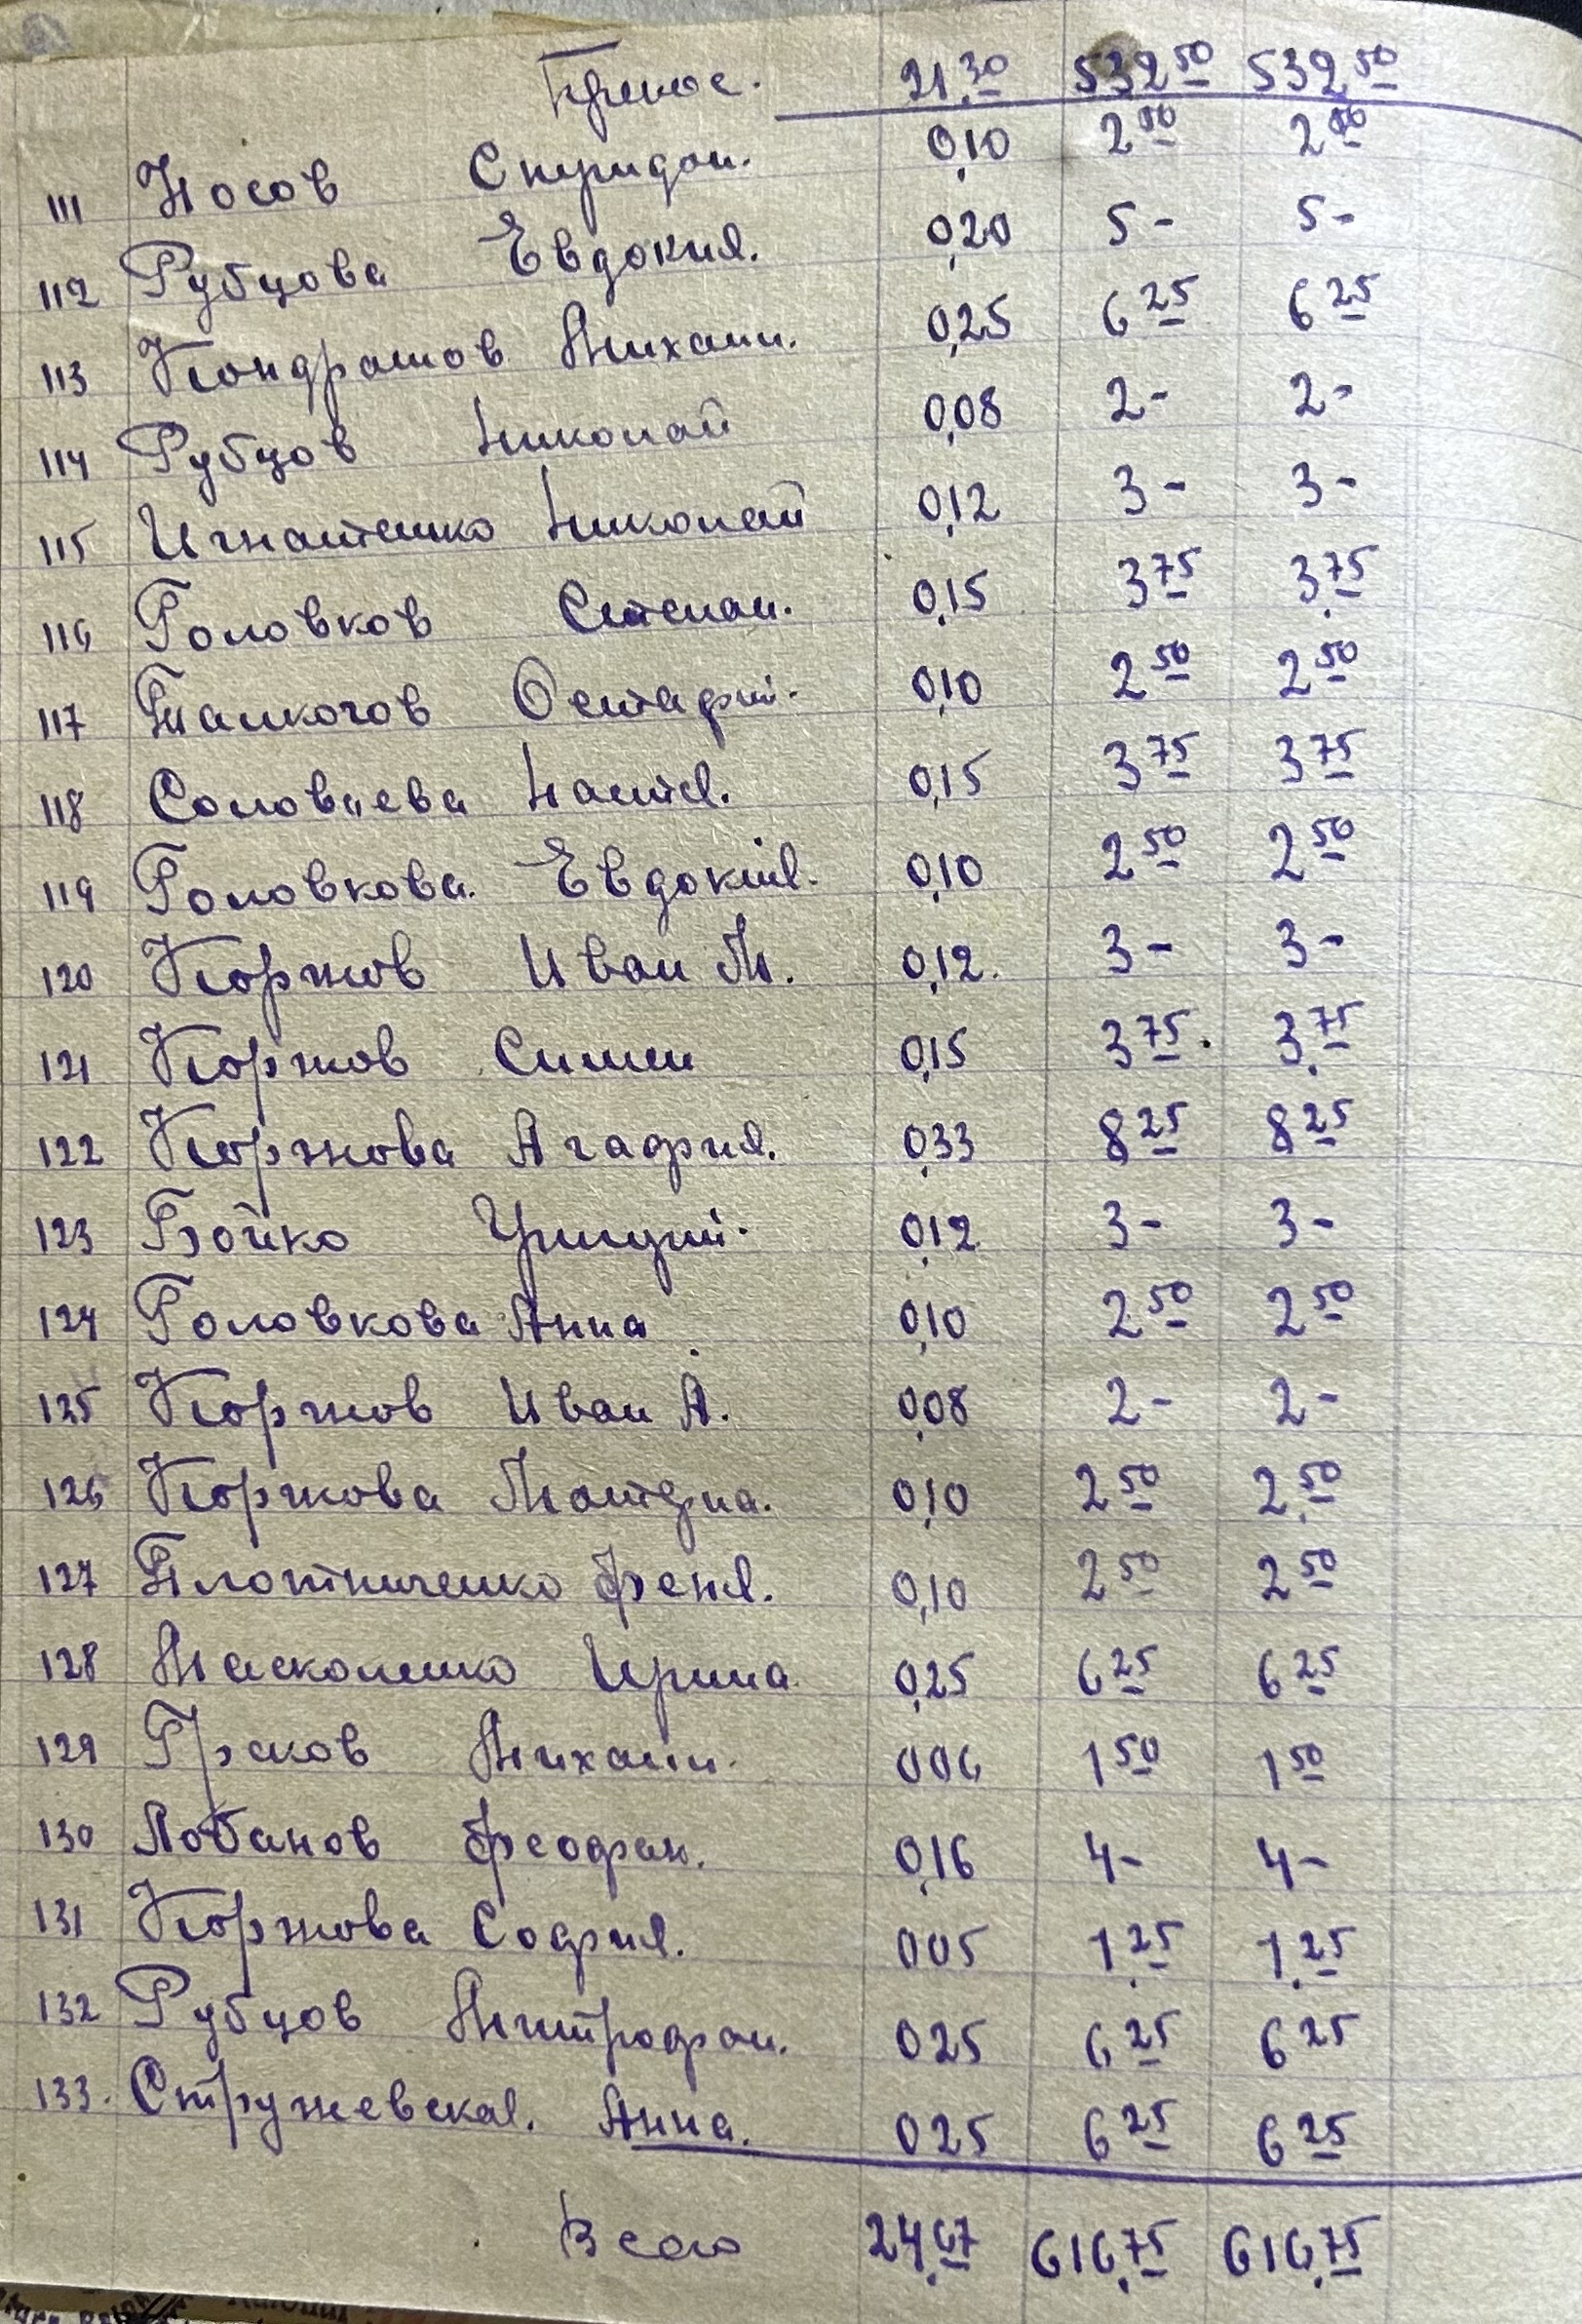 Принос. 21,30 532 50 532 50
111 Носов Спиридон. 0,10 2 50 2 50
112 Рубцова Евдокия. 0,20 5 - 5 -
113 Кондрашов Михаил. 0,25 6 25 6 25
114 Рубцов Николай 0,08 2 - 2 -
115 Игнатенко Николай 0,12 3 - 3 -
116 Головков Степан. 0,15 3 75 3,75
117 Остафий. 0,10 2 50 2 50
118 Соловьева Настя. 0,15 3 75 3 75
119 Головкова. Евдокія. 0,10 2 50 2 50
120 Коржов Иван М. 0,12. 3 - 3 -
121 Коржов Симен 0,15 3 75. 3,75
122 Коржова Агафия. 0,33 8 25 8 25
123 Бойко 0,12 3 - 3 -
124 Головкова Анна 0,10 2 50 2 50
125 Коржов Иван А. 0,08 2 - 2 -
126 Коржова Матрна. 0,10 2 50 2,50
127 Плотниченко Феня. 0,10 2 50 2 50
128 Масколенко Ирина. 0,25 6 25 6 25
129 Михаил. 006 1 50 1 50
130 Лобанов Феофан. 0,16 4 - 4 -
131 Коржова София. 005 1,25 1,25
132 Рубцов Митрофан. 025 6 25 6 25
133. Стружевская. Анна. 025 6 25 6 25
Всего 24,67 616,75 616,75